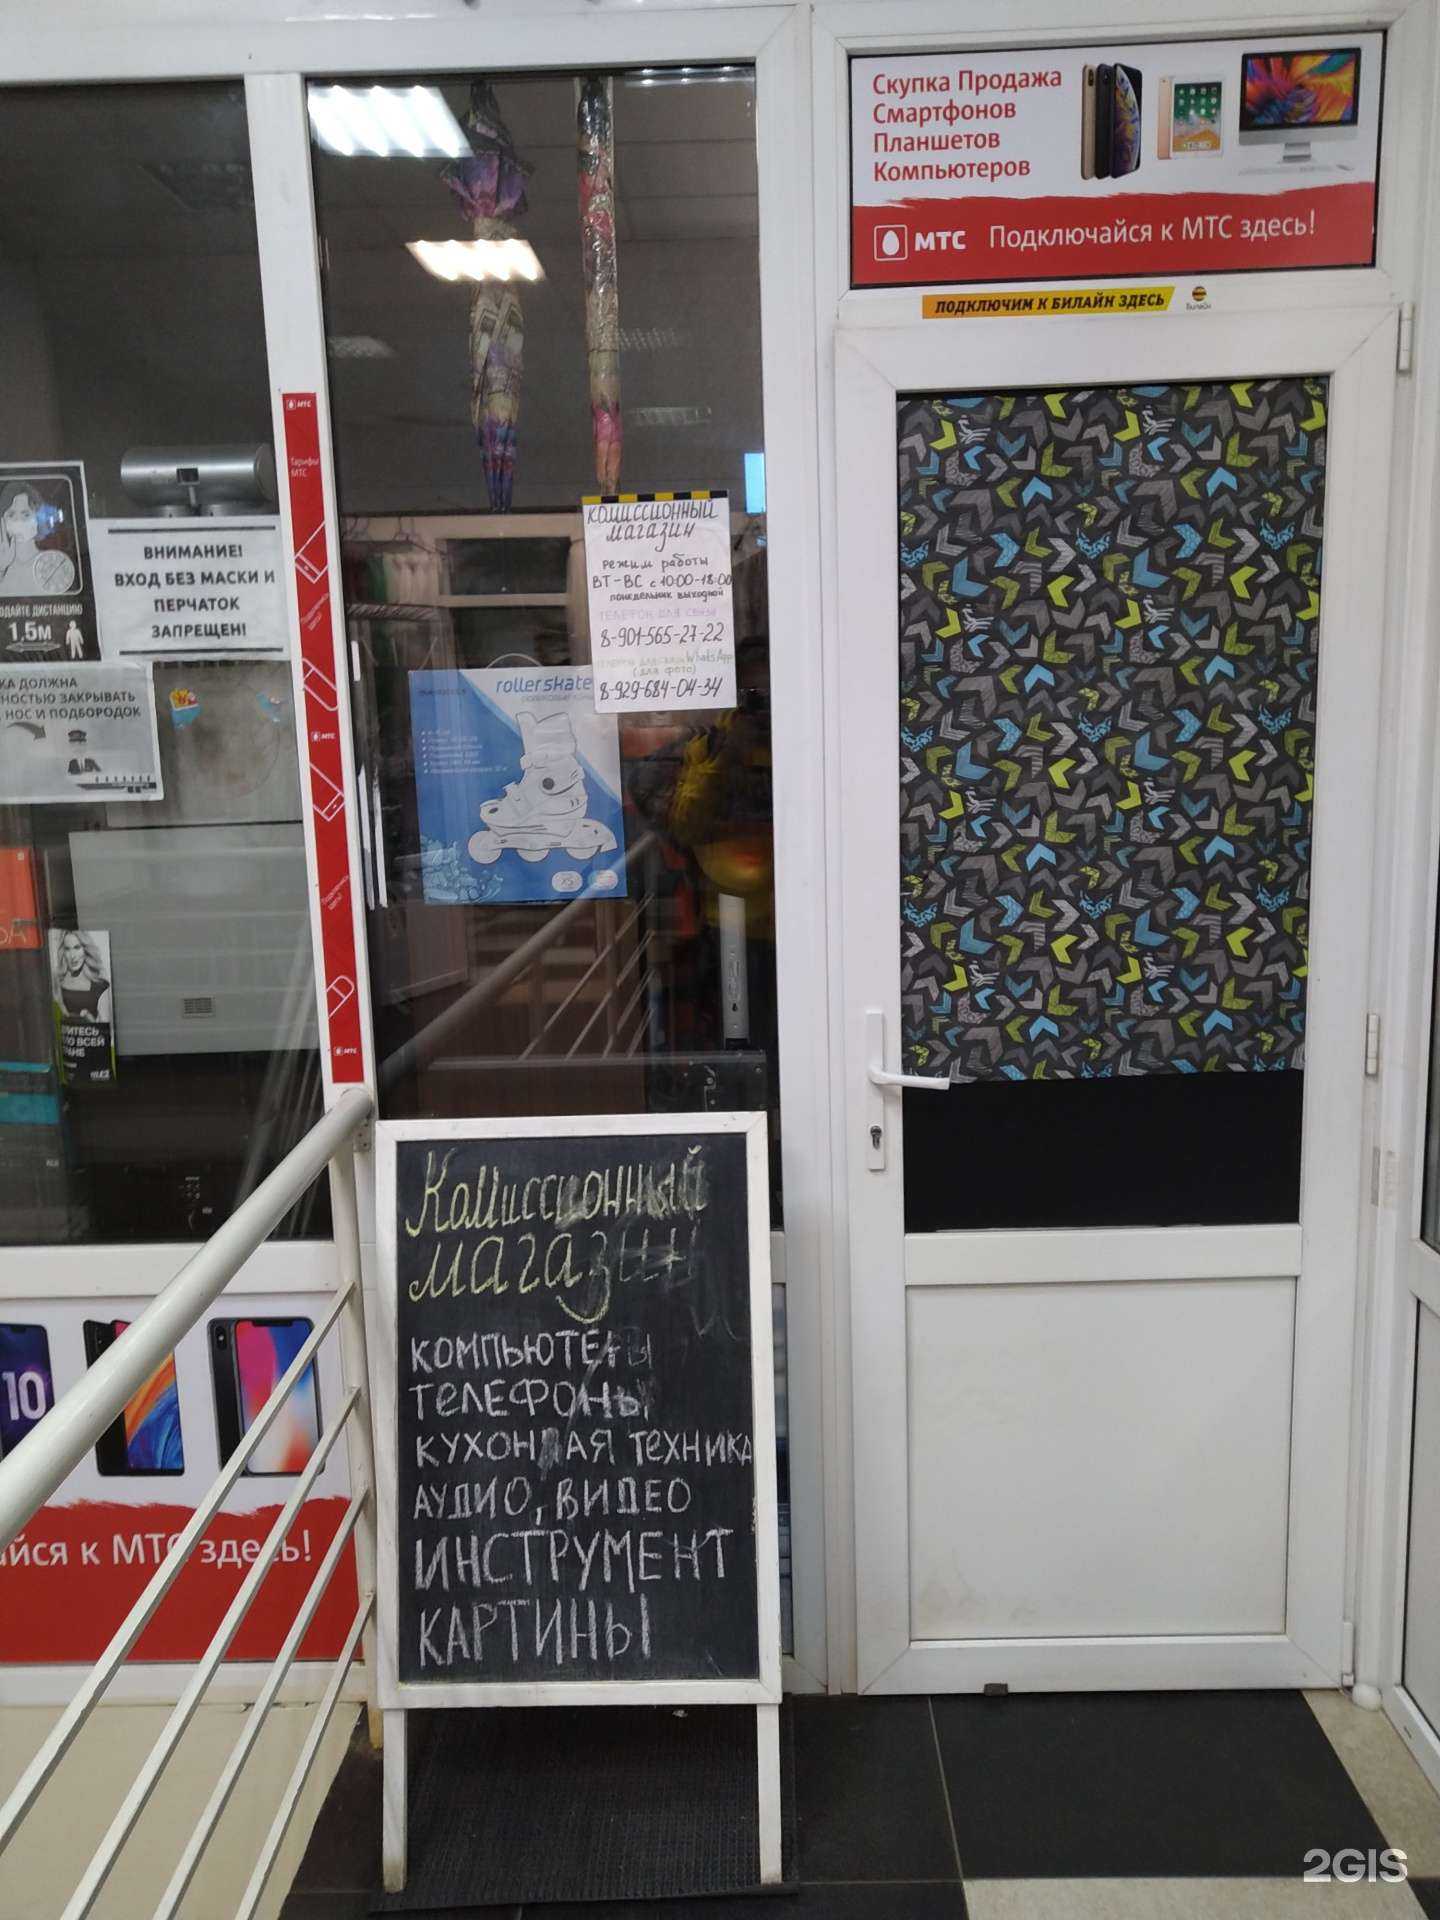 Скупка Продажа
Смартфонов
Планшетов
Компьютеров
МТС Подключайся к МТС здесь!
ПОДКЛЮЧИМ К БИЛАЙН ЗДЕСЬ
Билайн
МТС
Тарифы
МТС
Подключись
здесь!
МТС
Подключись
здесь!
МТС
КОМИССИОННЫЙ
МАГАЗИН
режим работы
ВТ-ВС с 10:00-18:00
понедельник выходной
ТЕЛЕФОН ДЛЯ СВЯЗИ
8-901-565-27-22
WhatsApp
(для фото)
8-929-684-04-34
ВНИМАНИЕ!
ВХОД БЕЗ МАСКИ И
ПЕРЧАТОК
ЗАПРЕЩЕН!
ДИСТАНЦИЮ
1,5м
ДОЛЖНА
ЗАКРЫВАТЬ
НОС И ПОДБОРОДОК
rollerskate
Комиссионный
магазин
КОМПЬЮТЕРЫ
ТЕЛЕФОНЫ
КУХОННАЯ ТЕХНИКА
АУДИО, ВИДЕО
ИНСТРУМЕНТ
КАРТИНЫ
10
к МТС здесь!
2GIS